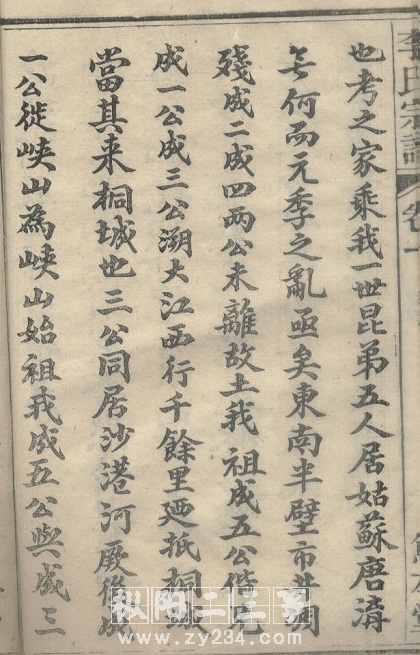 李氏宗譜 卷一
也考之家乘我一世昆弟五人居姑蘇磨清
無何而元季之亂亟矣東南半壁市井凋
殘成二成四兩公未離故土我 祖成五公偕
成一公成三公溯大江西行千餘里迺抵桐城
當其来桐城也三公同居沙港河厥後成
一公徙峽山為峽山始祖我成五公與成三
枞阳二三事
www.zy234.com